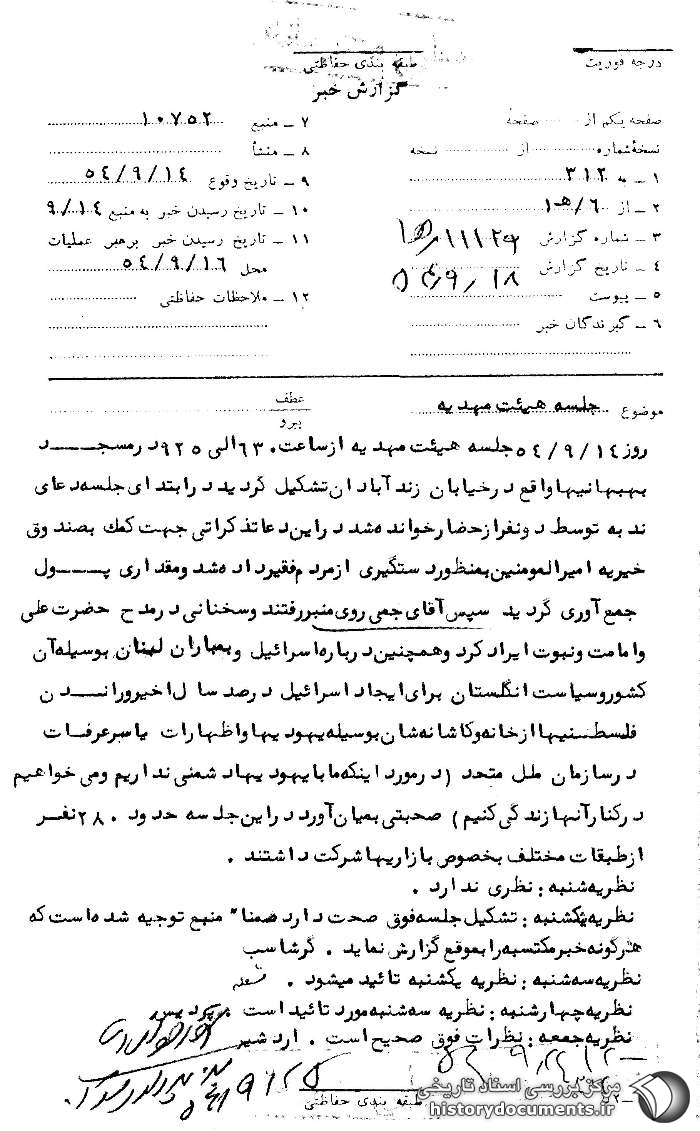 درجه فوریت
طبقه بندی حفاظتی
گزارش خبر
صفحه یکم از صفحه
نسخه شماره از نسخه
۱ ـ به ۳۱۲
۲ ـ از ۶/ه۱
۳ ـ شماره گزارش
۴ ـ تاریخ گزارش ۵۴/۹/۱۸
۵ ـ پیوست
۶ ـ گیرندگان خبر
۷ ـ منبع ۱۰۷۵۲
۸ ـ منشأ
۹ ـ تاریخ وقوع ۵۴/۹/۱۴
۱۰ ـ تاریخ رسیدن خبر به منبع ۹/۱۴
۱۱ ـ تاریخ رسیدن خبر برهبر عملیات
محل ۵۴/۹/۱۶
۱۲ ـ ملاحظات حفاظتی
موضوع جلسه هیئت مهدیه
عطف
پیرو
روز ۵۴/۹/۱۴ جلسه هیئت مهدیه از ساعت ۶۳۰ الی ۹۲۵ در مسجد
بهبهانیها واقع در خیابان زند آبادان تشکیل گردید در ابتدای جلسه دعای
ندبه توسط دو نفر از حضار خوانده شد در این دعا تذکراتی جهت کمک بصندوق
خیریه امیرالمومنین بمنظور دستگیری از مردم فقیر داده شد و مقداری پول
جمع آوری گردید سپس آقای جمی روی منبر رفتند و سخنانی در مدح حضرت علی
و امامت و نبوت ایراد کرد و همچنین درباره اسرائیل و بمباران لبنان بوسیله آن
کشور و سیاست انگلستان برای ایجاد اسرائیل در صد سال اخیر و راندن
فلسطینیها از خانه و کاشانه شان بوسیله یهودیها و اظهارات یاسر عرفات
در سازمان ملل متحد (در مورد اینکه ما با یهودیها دشمنی نداریم و می خواهیم
در کنار آنها زندگی کنیم) صحبتی بمیان آورد در این جلسه حدود ۲۸۰ نفر
از طبقات مختلف بخصوص بازاریها شرکت داشتند .
نظریه شنبه : نظری ندارد .
نظریه یکشنبه : تشکیل جلسه فوق صحت دارد ضمنا" منبع توجیه شده است که
هر گونه خبر مکتسبه را بموقع گزارش نماید . گرشاسب
نظریه سه شنبه : نظریه یکشنبه تائید میشود .
نظریه چهارشنبه : نظریه سه شنبه مورد تائید است .
نظریه جمعه : نظرات فوق صحیح است . اردشیر
طبقه بندی حفاظتی
مرکز بررسی اسناد تاریخی
historydocuments.ir